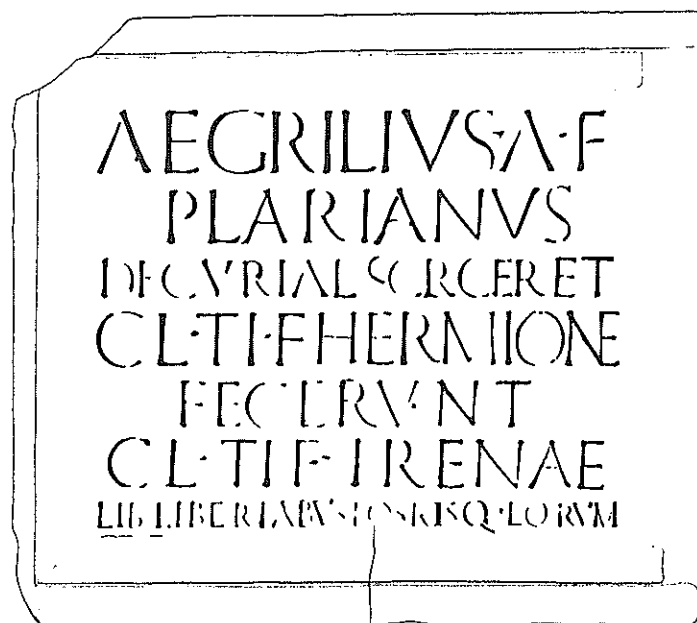 A EGRILIVS·A·F
PLARIANVS
DECVRIAL SCR CER ET
CL·TI·F HERMIONE
FECERVNT
CL·TI F·IRENAE
LIB LIBERTABVS POSRISQ·EORVM